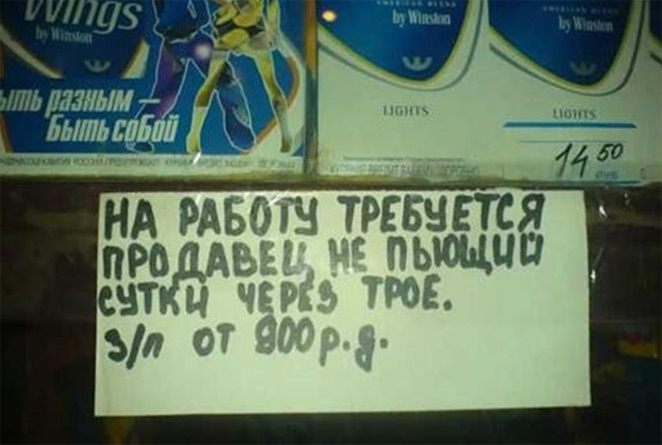 Wings
by Winston
ыть разным —
быть собой
AMERICAN BLEND
by Winston
LIGHTS
by Winston
LIGHTS
14 50
НА РАБОТУ ТРЕБУЕТСЯ
ПРОДАВЕЦ НЕ ПЬЮЩИЙ
СУТКИ ЧЕРЕЗ ТРОЕ.
З/П ОТ 800 Р.Д.